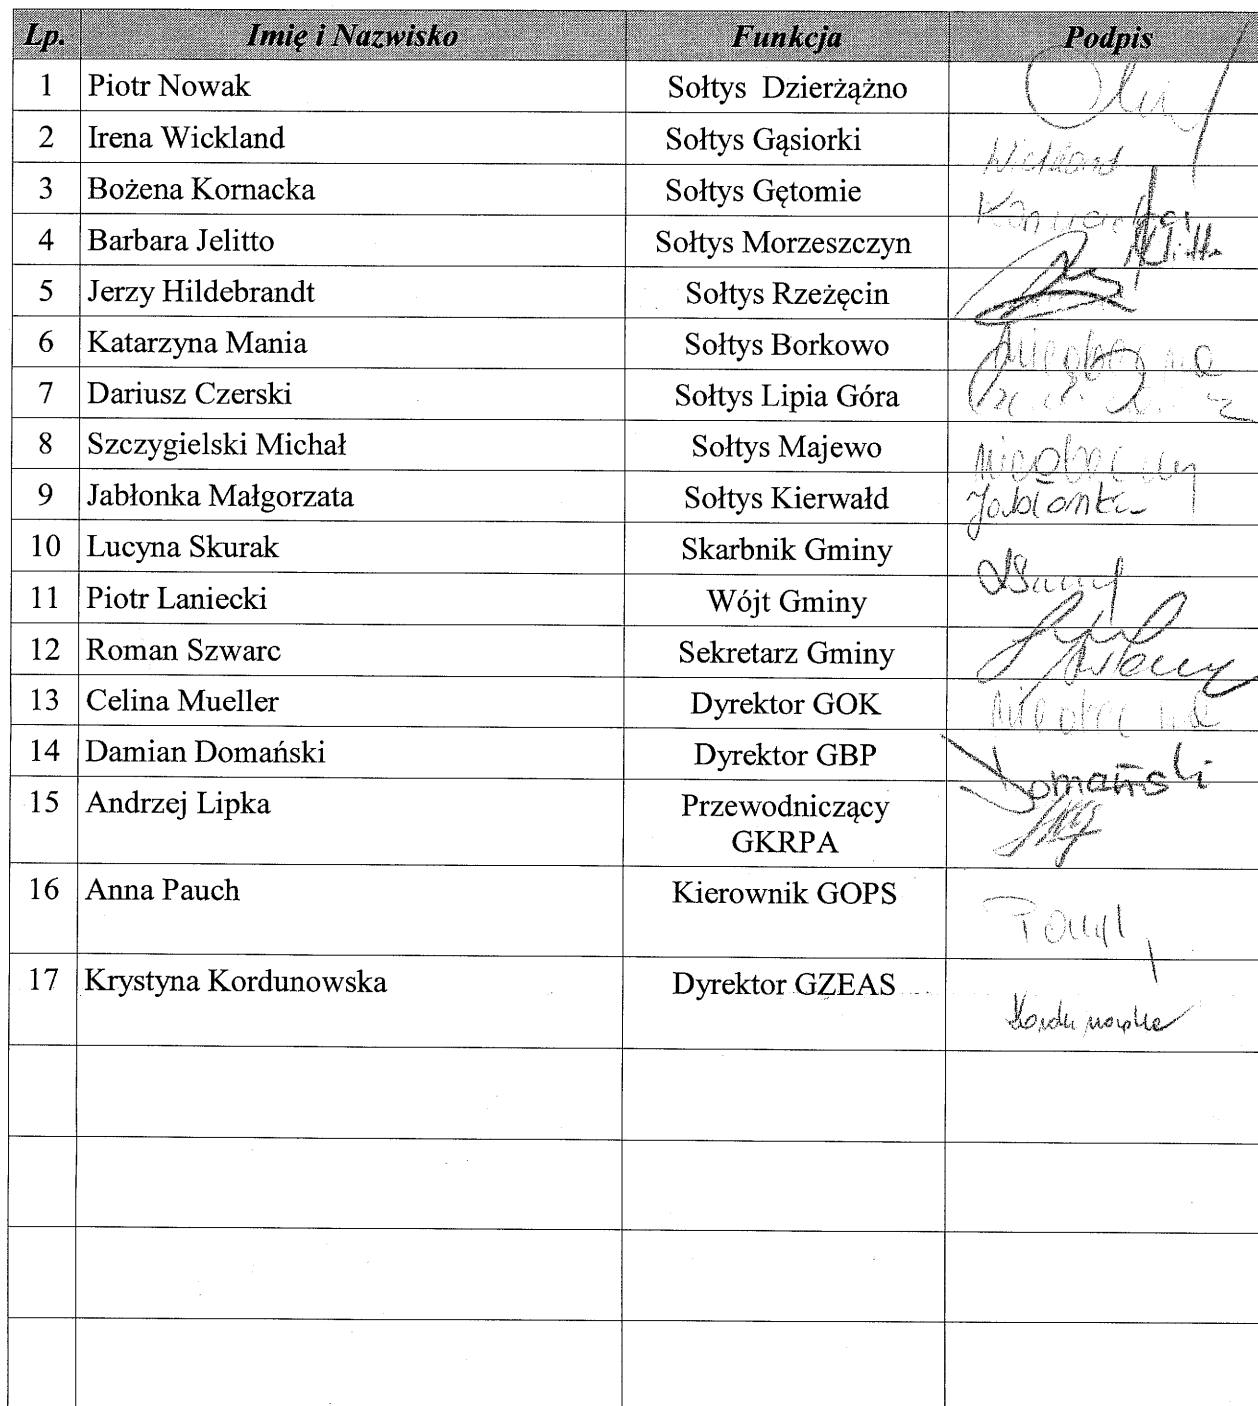 Lp. Imię i Nazwisko Funkcja Podpis
1 Piotr Nowak Sołtys Dzierżążno
2 Irena Wickland Sołtys Gąsiorki Wickland
3 Bożena Kornacka Sołtys Gętomie Kornacka
4 Barbara Jelitto Sołtys Morzeszczyn
5 Jerzy Hildebrandt Sołtys Rzeżęcin
6 Katarzyna Mania Sołtys Borkowo nieobecna
7 Dariusz Czerski Sołtys Lipia Góra
8 Szczygielski Michał Sołtys Majewo nieobecny
9 Jabłonka Małgorzata Sołtys Kierwałd Jabłonka
10 Lucyna Skurak Skarbnik Gminy
11 Piotr Laniecki Wójt Gminy
12 Roman Szwarc Sekretarz Gminy
13 Celina Mueller Dyrektor GOK nieobecna
14 Damian Domański Dyrektor GBP Domański
15 Andrzej Lipka Przewodniczący
GKRPA
16 Anna Pauch Kierownik GOPS Pauch
17 Krystyna Kordunowska Dyrektor GZEAS
Kordunowska